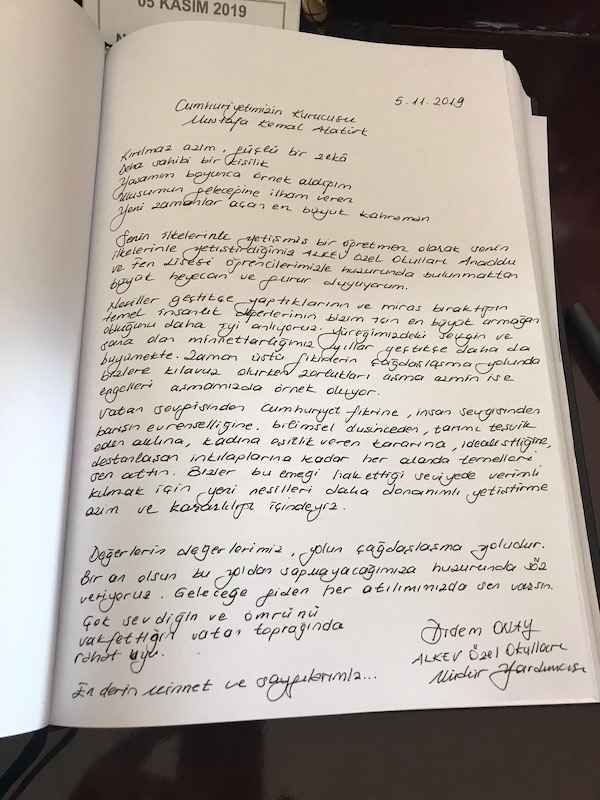 05 KASIM 2019
5.11.2019
Cumhuriyetimizin Kurucusu
Mustafa Kemal Atatürk
Kırılmaz azim, güçlü bir zekâ
Deha sahibi bir kişilik
Yaşamım boyunca örnek aldığım
Ulusumun geleceğine ilham veren
Yeni zamanlar açan en büyük kahraman
Senin ilkelerinle yetişmiş bir öğretmen olarak senin
ilkelerinle yetiştirdiğimiz ALKEV Özel Okulları Anadolu
ve Fen Lisesi öğrencilerimizle huzurunda bulunmaktan
büyük heyecan ve gurur duyuyorum.
Nesiller geçtikçe yaptıklarının ve miras bıraktığın
temel insanlık değerlerinin bizim için en büyük armağan
olduğunu daha iyi anlıyoruz. Yüreğimizdeki sevgin ve
sana olan minnettarlığımız yıllar geçtikçe daha da
büyümekte. Zaman üstü fikirlerin çağdaşlaşma yolunda
bizlere kılavuz olurken zorlukları aşma azmin ise
engelleri aşmamızda örnek oluyor.
Vatan sevgisinden Cumhuriyet fikrine, insan sevgisinden
barışın evrenselliğine, bilimsel düşünceden, tarımı teşvik
eden aklına, kadına eşitlik veren kararına, idealistliğine,
destanlaşan inkılaplarına kadar her alanda temelleri
sen attın. Bizler bu emeği hak ettiği seviyede verimli
kılmak için yeni nesilleri daha donanımlı yetiştirme
azim ve kararlılığı içindeyiz.
Değerlerin değerlerimiz, yolun çağdaşlaşma yoludur.
Bir an olsun bu yoldan sapmayacağımıza huzurunda söz
veriyoruz. Geleceğe giden her atılımımızda sen varsın.
Çok sevdiğin ve ömrünü
vakfettiğin vatan toprağında
rahat uyu.
En derin minnet ve saygılarımla...
Didem ONAY
ALKEV Özel Okulları
Müdür Yardımcısı